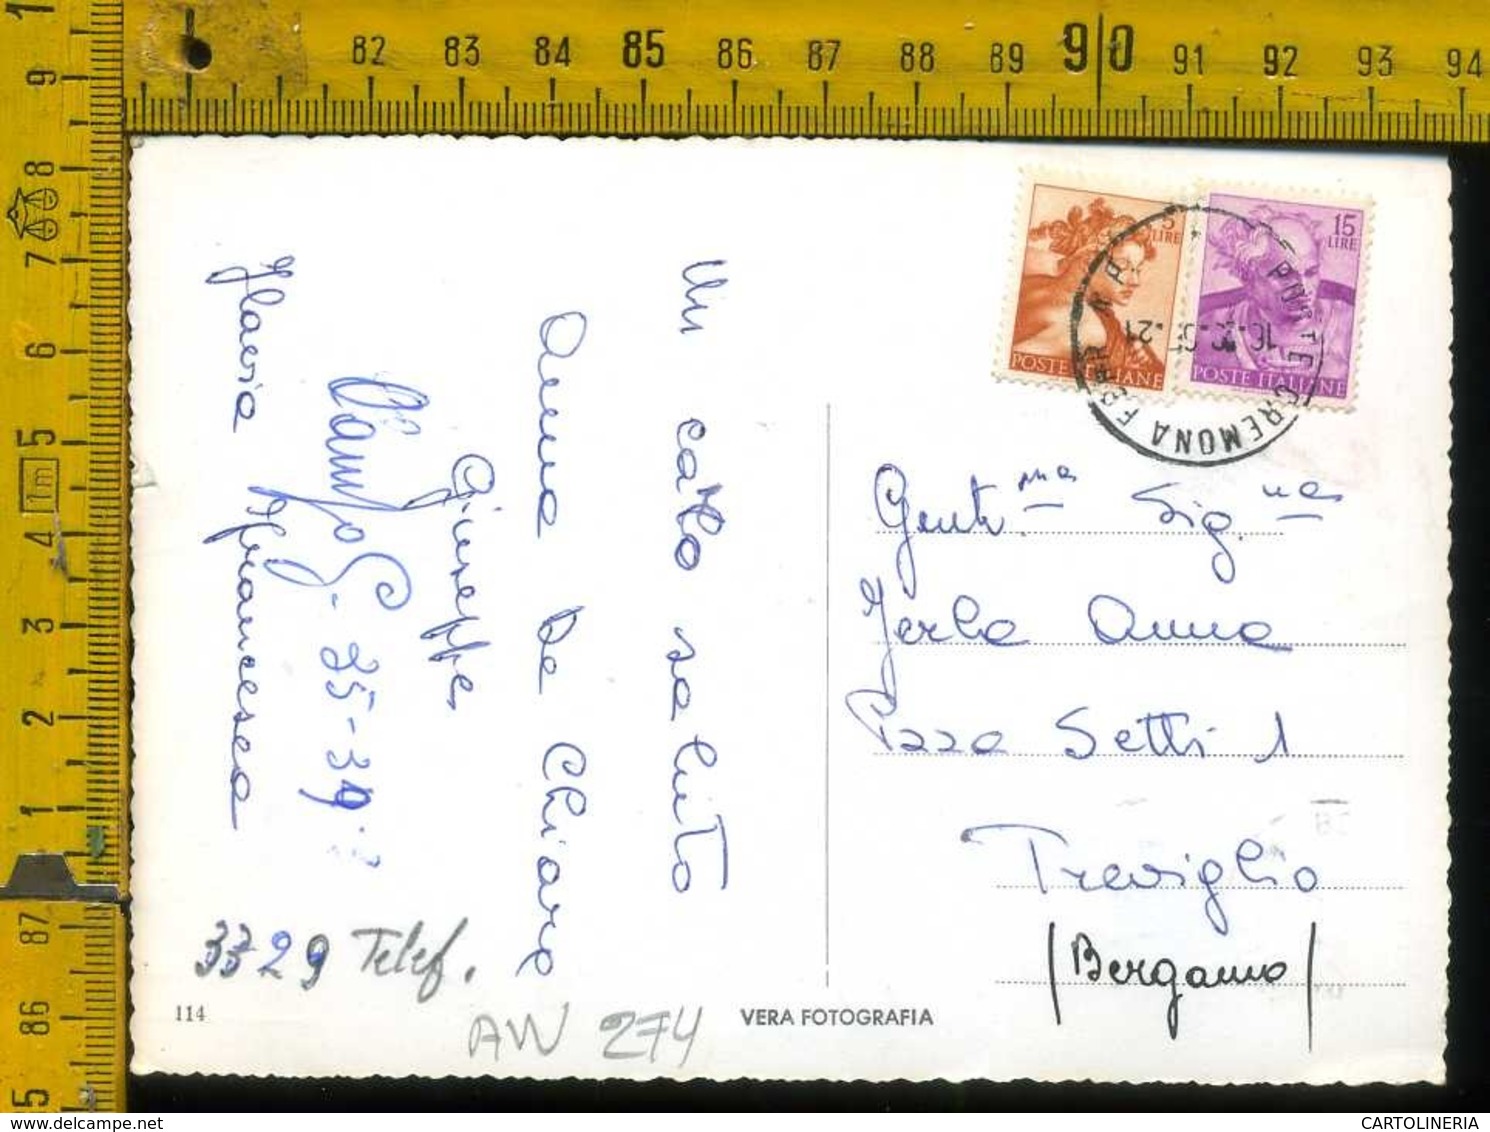 82 83 84 85 86 87 88 89 90 91 92 93 94
9
8
7
6
5
1m
4
3
2
1
87
86
5
5 LIRE
POSTE ITALIANE
15 LIRE
POSTE ITALIANE
CREMONA FERR
Un caro saluto
Anna De Chiaro
Giuseppe
35-39
Flavia Francesca
3329 Telef.
Gent.me Sig.ne
Zerba Anna
P.zza Setti 1
Treviglio
(Bergamo)
114
AW 274
VERA FOTOGRAFIA
www.delcampe.net
CARTOLINERIA